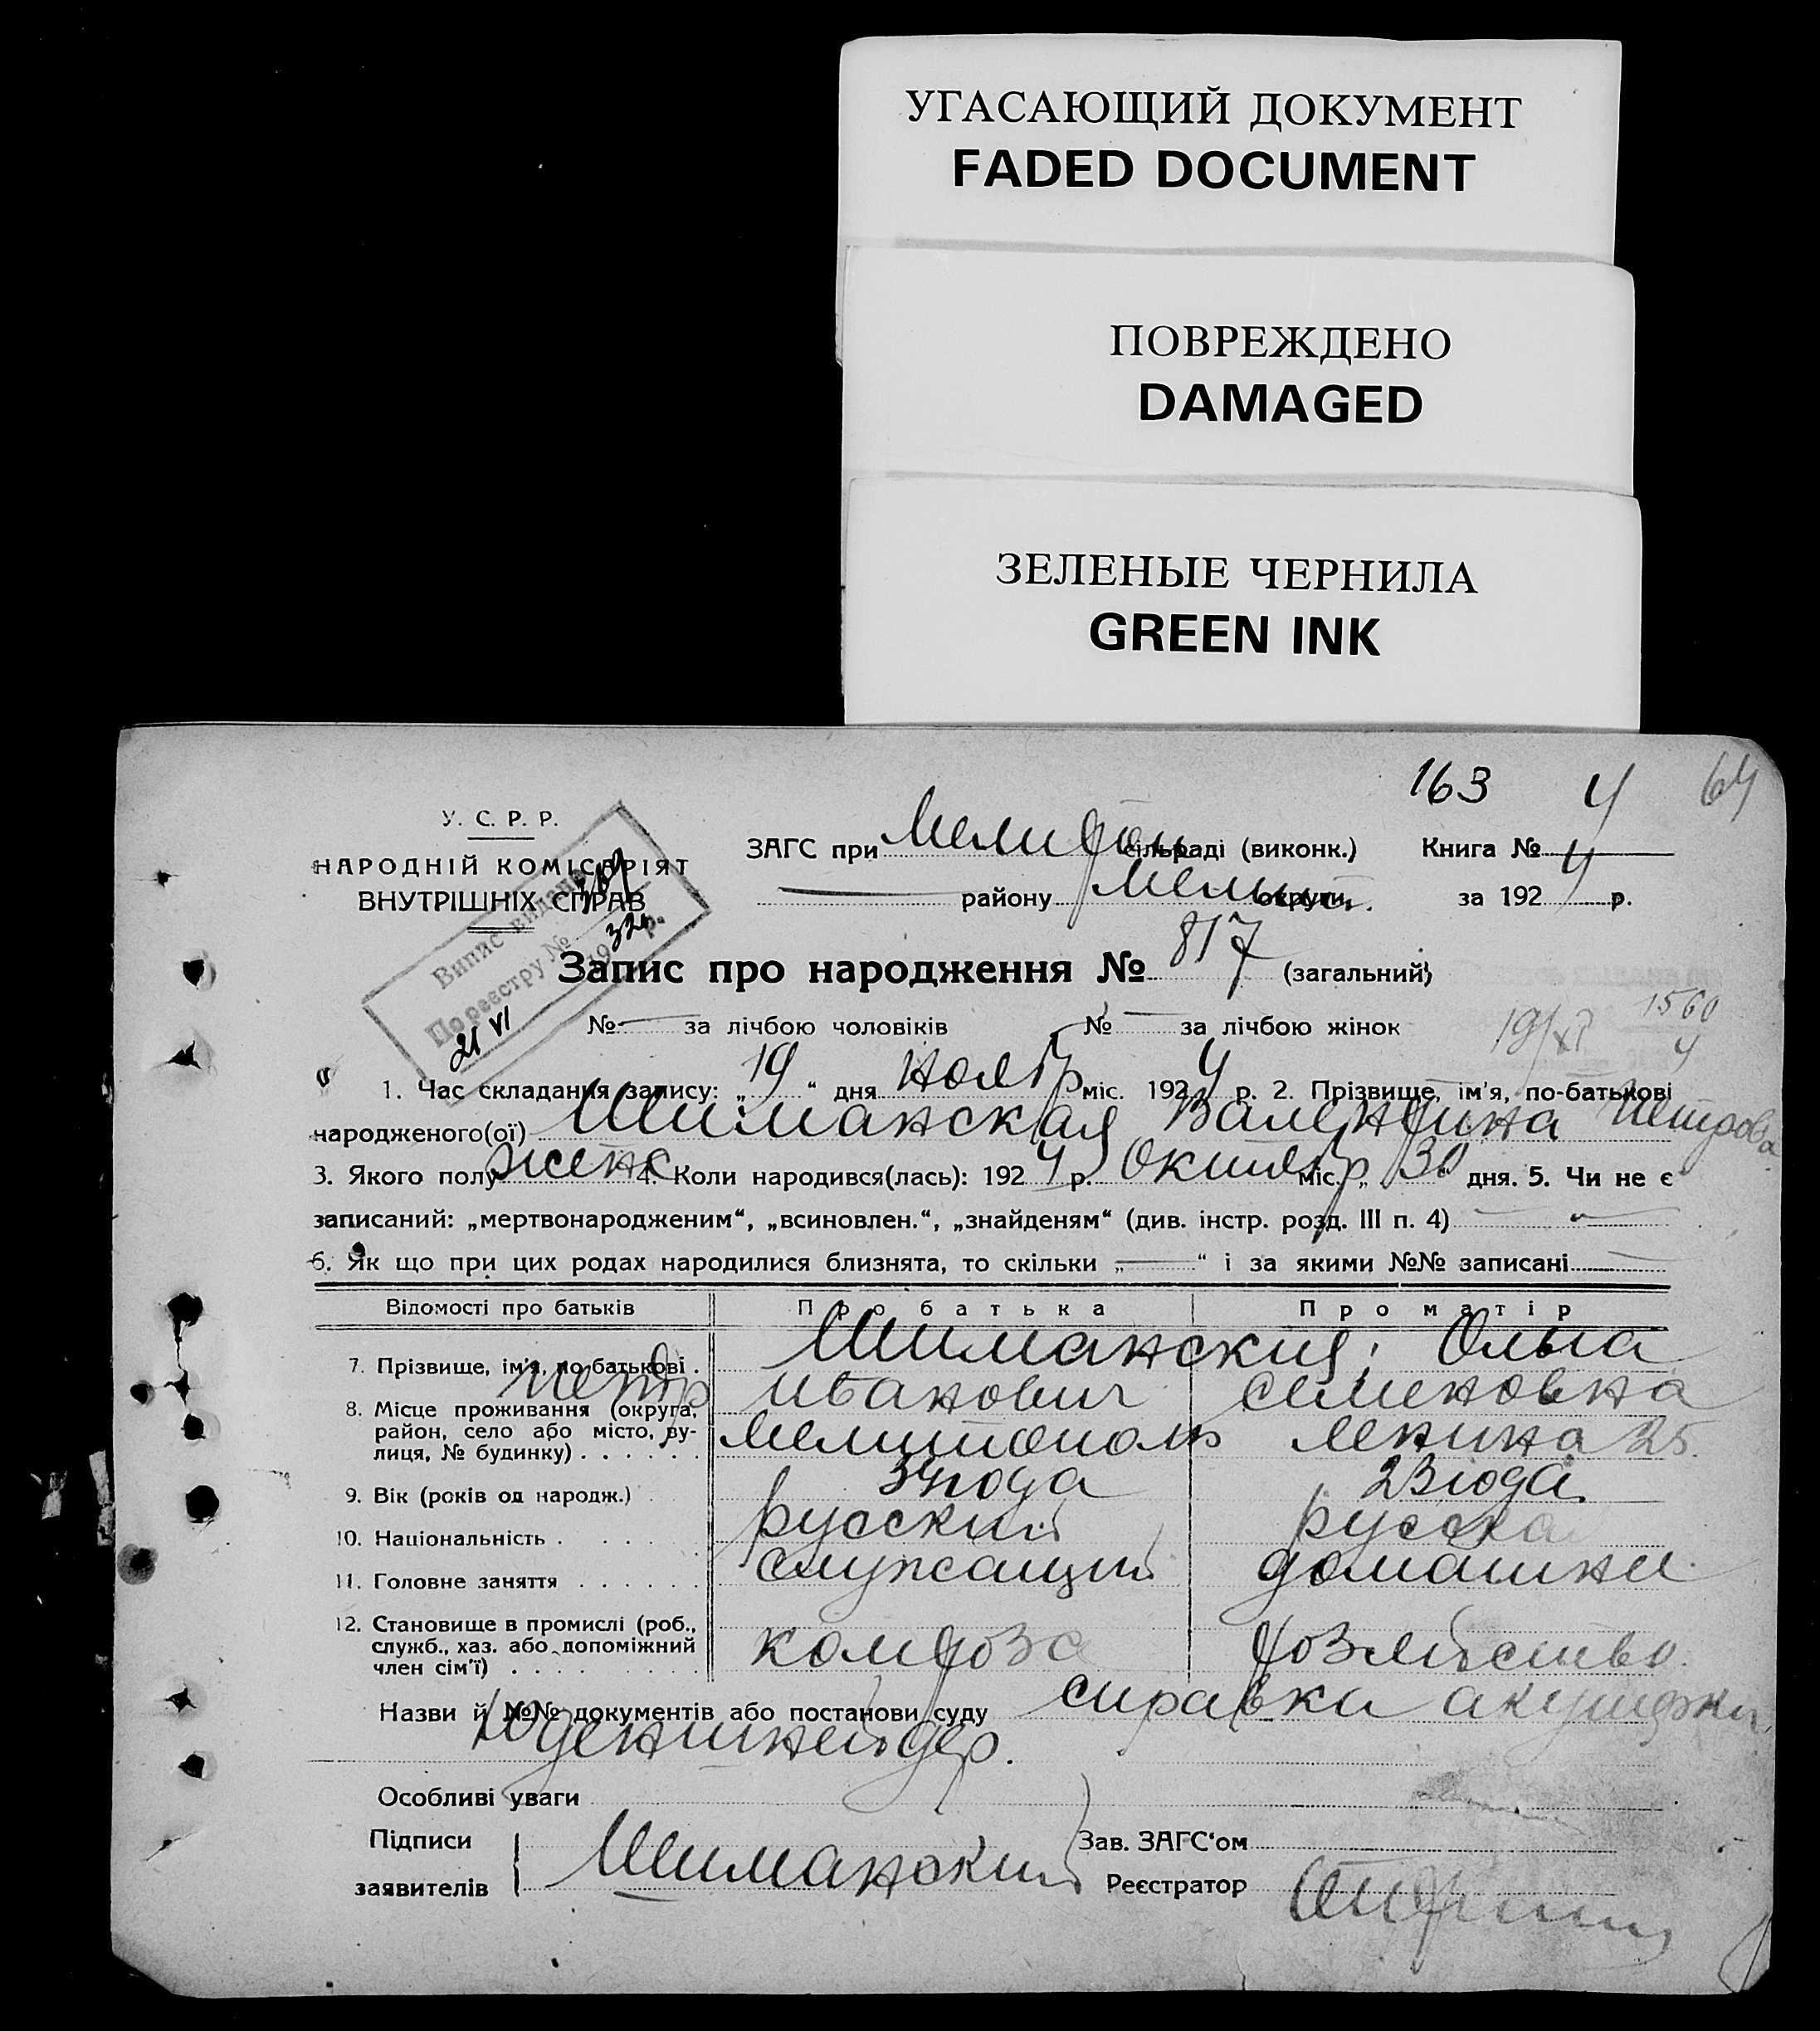 УГАСАЮЩИЙ ДОКУМЕНТ
FADED DOCUMENT
ПОВРЕЖДЕНО
DAMAGED
ЗЕЛЕНЫЕ ЧЕРНИЛА
GREEN INK
163 4 64
У. С. Р. Р.
НАРОДНІЙ КОМІСАРІЯТ
ВНУТРІШНІХ СПРАВ
Випис видано
По реєстру №
19 32 р.
21 VI
ЗАГС при сільраді (виконк.) Книга № 4
району округи, за 192 4 р.
Запис про народження № 817 (загальний)
№ — за лічбою чоловіків № — за лічбою жінок
19/XI 1560
4
1. Час складання запису: „ 19 “ дня ноябр міс. 192 4 р. 2. Прізвище, ім'я, по-батькові
народженого(ої) Шиманская Валентина Петровна
3. Якого полу женс 4. Коли народився(лась): 192 4 р. Октябр міс. „ 30 “ дня. 5. Чи не є
записаний: „мертвонародженим“, „всиновлен.“, „знайденям“ (див. інстр. розд. III п. 4) —
6. Як що при цих родах народилися близнята, то скільки „ — “ і за якими №№ записані —
Відомості про батьків Про батька Про матір
7. Прізвище, ім'я, по-батькові . Шиманский Ольга
Петр Иванович Семеновна
8. Місце проживання (округа,
район, село або місто, ву-
лиця, № будинку) . . . . . . Мелитополь Ленина 25.
9. Вік (років од народж.) . 34 года 23 года
10. Національність . . . . . . русский русская
11. Головне заняття . . . . . . служащий домашнее
12. Становище в промислі (роб.,
служб., хаз. або допоміжний
член сім'ї) . . . . . . хозяйство
Назви й №№ документів або постанови суду справка акушерки
Особливі уваги
Підписи Зав. ЗАГС'ом
заявителів Шиманский Реєстратор